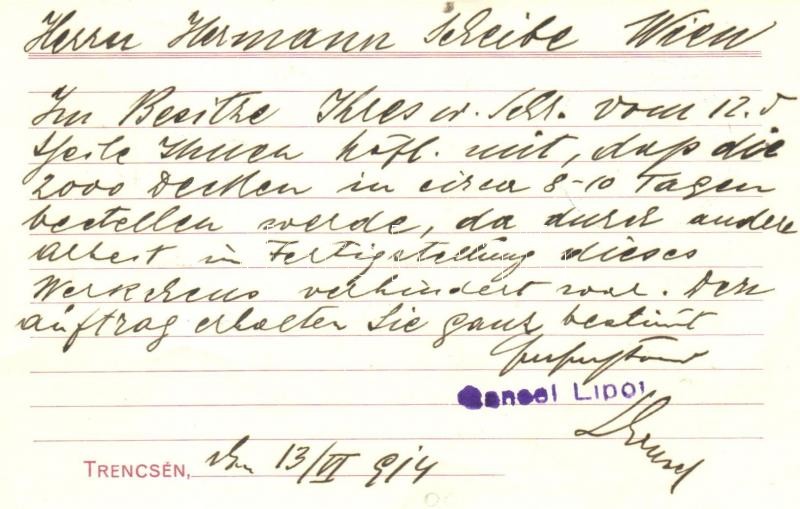 Herrn Hermann Scheibe Wien
Im Besitze Ihres w. Schr. vom 12. d
theile Ihnen höfl. mit, daß die
2000 Decken in circa 8-10 Tagen
bestellen werde, da durch andere
Arbeit in Fertigstellung dieses
Werkchens verhindert war. Den
Auftrag erhalten Sie ganz bestimt
Lipot
TRENCSÉN, den 13/VI 914